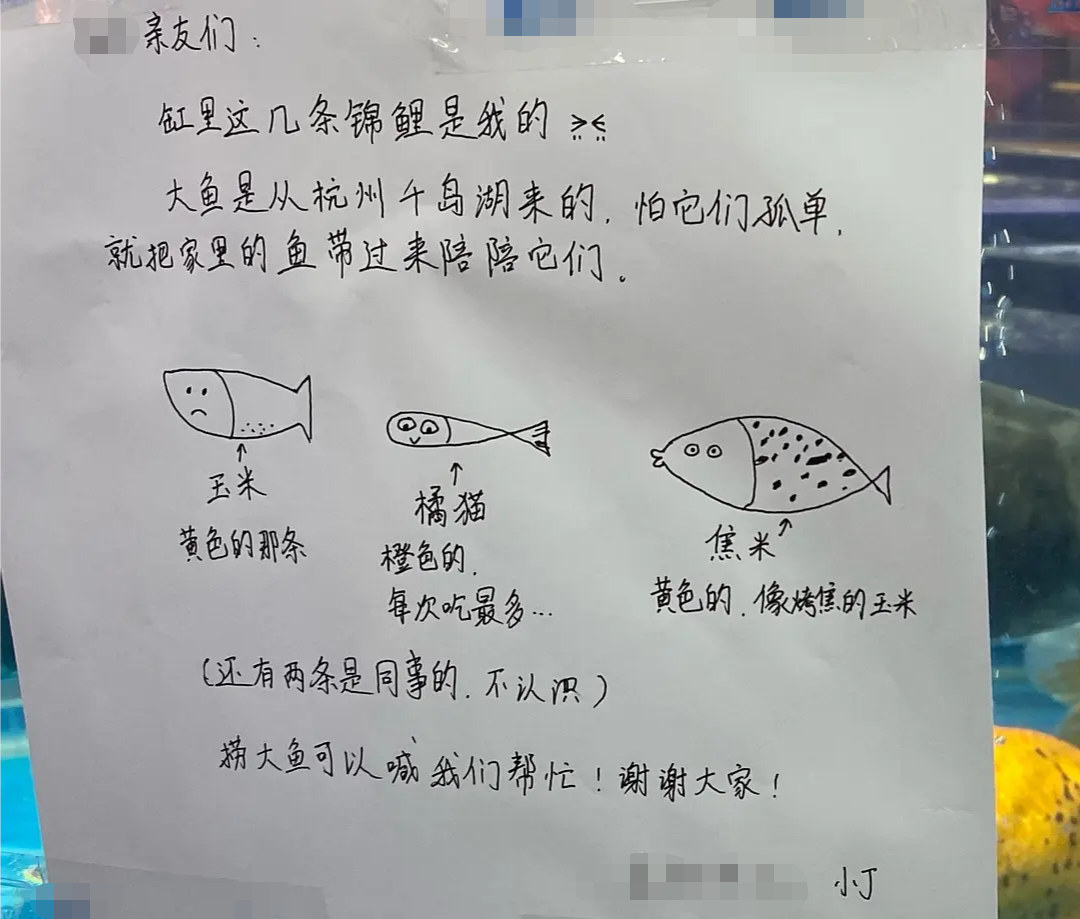 亲友们：
缸里这几条锦鲤是我的 ><
大鱼是从杭州千岛湖来的，怕它们孤单，
就把家里的鱼带过来陪陪它们。
玉米
黄色的那条
橘猫
橙色的，
每次吃最多…
焦米
黄色的，像烤焦的玉米
（还有两条是同事的，不认识）
捞大鱼可以喊我们帮忙！谢谢大家！
小丁